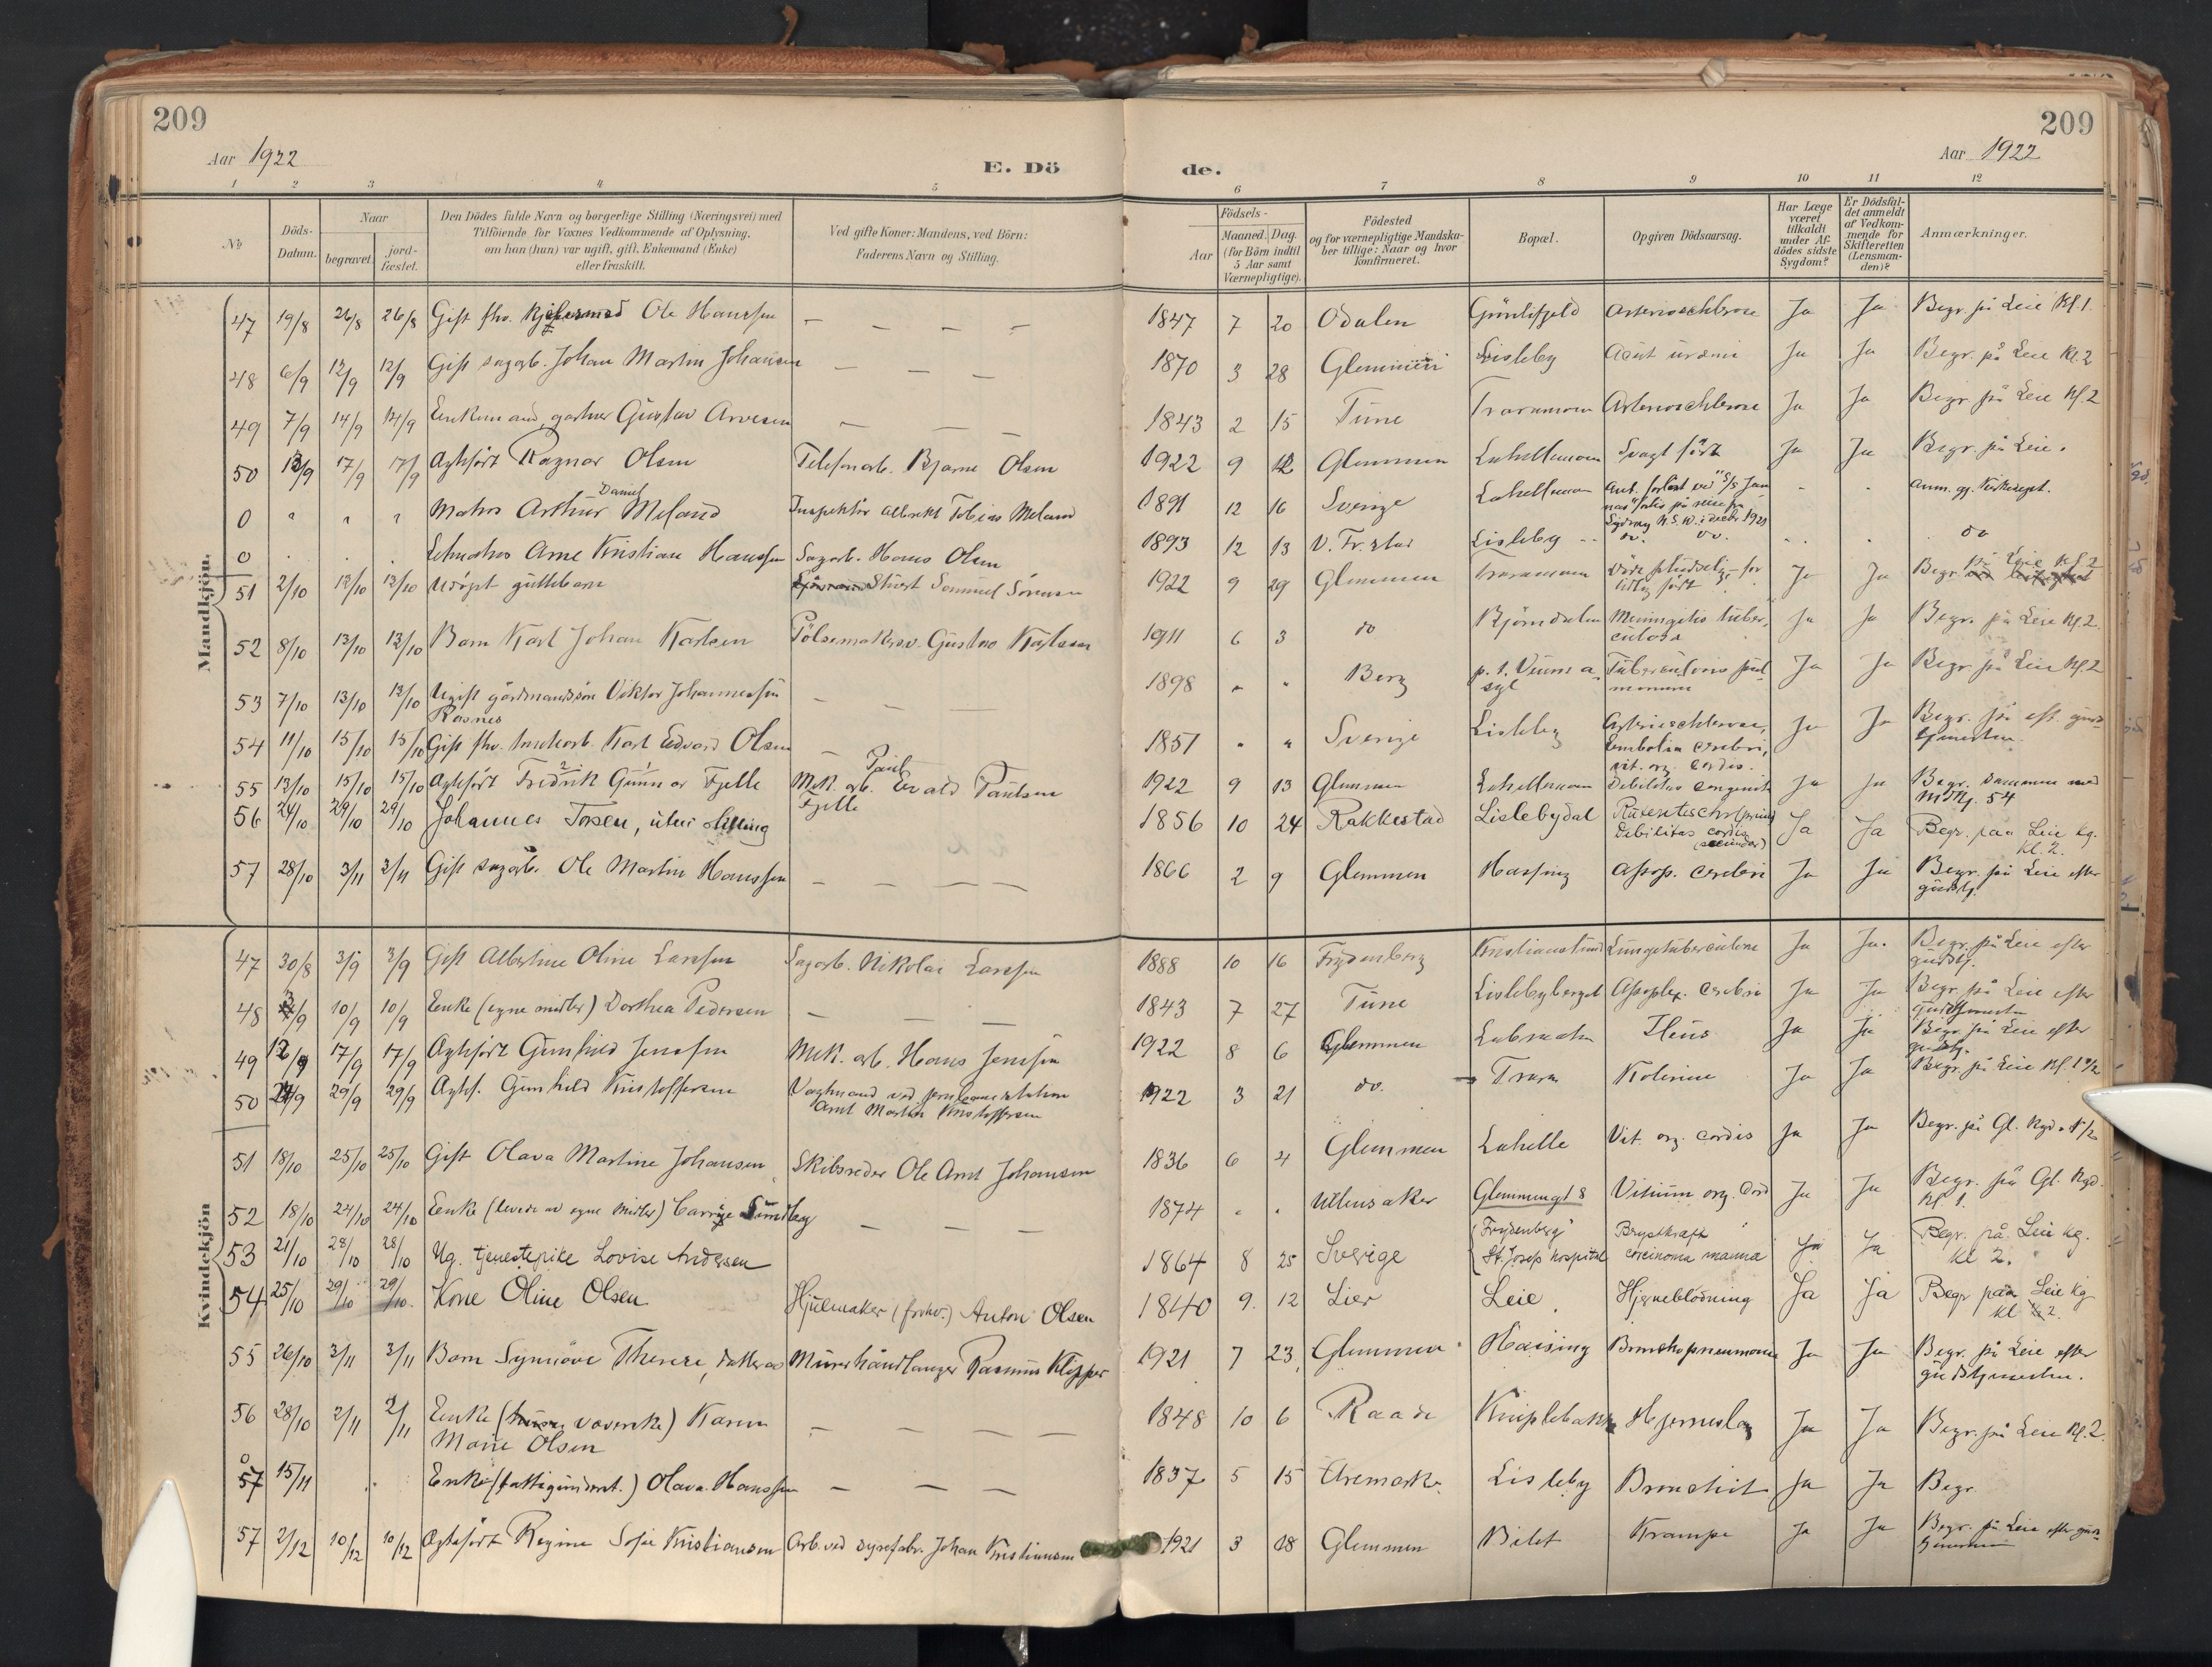 209
209
Aar 1922
E. Dö
de.
Aar 1922
1 2 3 4 5 6 7 8 9 10 11 12
No
Döds-Datum.
Naar
begravet.
jord-fæstet.
Den Dödes fulde Navn og borgerlige Stilling (Næringsvei) med
Tilföiende for Voxnes Vedkommende af Oplysning,
om han (hun) var ugift, gift, Enkemand (Enke)
eller fraskilt.
Ved gifte Koner: Mandens, ved Börn:
Faderens Navn og Stilling.
Födsels-
Aar
Maaned. Dag.
(for Börn indtil
5 Aar samt
Værnepligtige).
Födested
og for værnepligtige Mandska-
ber tillige: Naar og hvor
konfirmeret.
Bopæl.
Opgiven Dödsaarsag.
Har Læge
været
tilkaldt
under Af-
dödes sidste
Sygdom?
Er Dödsfal-
det anmeldt
af Vedkom-
mende for
Skifteretten
(Lensman-
den)?
Anmærkninger.
Mandkjön.
47 19/8 26/8 26/8 Gift fhv. Ole Hanssen — — — — 1847 7 20 Odalen Grönlifjeld Arterioschlerose Ja Ja Begr. på Leie Kl. 1.
48 6/9 12/9 12/9 Gift sagarb. Johan Martin Johansen — — — 1870 3 28 Glemmen Lisleby Acut urämi Ja Ja Begr. på Leie Kl. 2
49 7/9 14/9 14/9 Enkemand, gartner Gustav Arvesen — — — 1843 2 15 Tune Traramoen Arterioschlerose Ja Ja Begr. på Leie Kl. 2
50 13/9 17/9 17/9 Agtefödt Ragnar Olsen Telefonarb. Bjarne Olsen 1922 9 12 Glemmen Lahellemoen Svagt född Ja Ja Begr. på Leie.
0 " " " Matros Arthur Daniel Meland Inspektör Albrekt Tobias Meland 1891 12 16 Sverige Lahellemoen Ant. forlist ved S/S Jan
på reise fra
Sydney N.S.W. i decbr 1921 - - anm. gj. Skifterett.
0 . . . Letmatros Arne Kristian Hanssen Sagarb. Hans Olsen 1893 12 13 V. Fr.stad Lisleby do. do. - . do
51 2/10 12/10 12/10 Udöpt guttebarn Samuel Sörensen 1922 9 29 Glemmen Traramoen Döde pludselig – for
tidlig född Ja Ja Begr. på Leie Kl. 2
52 8/10 13/10 13/10 Barn Karl Johan Karlsen Pölsemakersv. Gustav Karlsen 1911 6 3 do Bjørndalen Meningitis tuber,
culosa Ja Ja Begr. på Leie Kl. 2.
53 7/10 13/10 13/10 Ugift gårdmandssön Viktor Johannessen
Rosnes — — — 1898 " " Berg p. t. Veum a
syl Tuberculosis pul
monum Ja Ja Begr. på Leie Kl. 2
54 11/10 15/10 15/10 Gift fhv. Karl Edvard Olsen — 1851 " " Sverige Lisleby Arterioschlerose,
Embolia cerebri,
vit. org. cordis. Ja Ja Begr. på eft. guds
tjenesten.
55 13/10 15/10 15/10 Agtefödt Fredrik Gunnar Fjelle Mek. arb. Evald Paul Paulsen
Fjelle 1922 9 13 Glemmen Lahellemoen Debilitas congenita Ja Ja Begr. sammen med
Nr. 54
56 24/10 29/10 29/10 Johannes Torsen, uten stilling 1856 10 24 Rakkestad Lislebydal
Debilitas cordis
(secundær) Ja Ja Begr. paa Leie Kg.
Kl. 2.
57 28/10 3/11 3/11 Gift sagarb. Ole Martin Hanssen — — — — 1866 2 9 Glemmen Hassing Apop. cerebri Ja Ja Begr. på Leie efter
gudstj.
Kvindekjön
47 30/8 3/9 3/9 Gift Albertine Oline Larssen Sagarb. Nikolai Larssen 1888 10 16 Frydenberg Kristianslund Lungetuberculose Ja Ja. Begr. på Leie efter
gudstj.
48 3/9 10/9 10/9 Enke (egne midler) Dorthea Pedersen — — — 1843 7 27 Tune Lislebyberget Apoplex. cerebri Ja Ja Begr. på Leie efter
gudstjenesten
49 12/9 17/9 17/9 Agtefödt Gunhild Jenssen Mek. arb. Hans Jenssen 1922 8 6 Glemmen Labraaten Ileus Ja Ja Begr. på Leie efter
gudstj.
50 24/9 29/9 29/9 Agtf. Gunhild Kristoffersen Vagtmand ved jernbanestation
Arnt Martin Kristoffersen 1922 3 21 do. Trara Kolerine Ja Ja Begr. på Leie Kl. 1 1/2
51 18/10 25/10 25/10 Gift Olava Martine Johansen Skibsreder Ole Arnt Johansen 1836 6 4 Glemmen Lahelle Vit. org. cordis Ja Ja Begr. på Gl. Kgd.
52 18/10 24/10 24/10 Enke (levede av egne midler) — — — 1874 . . Ullensaker Glemmengt 8 Vitium org. Cord Ja Ja Begr. på Gl. Kgd.
Kl. 1.
53 21/10 28/10 28/10 Ug. tjenestepike Lovise Andersen 1864 8 25 Sverige Frydenberg
St. Josep hospital Brystkræft
carcinoma mamma Ja Ja Begr. på Leie Kg.
Kl 2.
54 25/10 29/10 29/10 Kone Oline Olsen Hjulmaker (forhv.) Anton Olsen 1840 9. 12 Lier Leie Hjerneblödning Ja Ja Begr paa Leie Kg
Kl 2.
55 26/10 3/11 3/11 Barn Synnöve Therese, datter av Murerhåndlanger Rasmus Klipper 1921 7 23 Glemmen Hassing Bronchopneumoni Ja Ja Begr. på Leie efter
gudstjenesten.
56 28/10 2/11 2/11 Enke (væverske) Karen
Marie Olsen — — — — 1848 10 6 Raade Kniplebakk Hjerneslag Ja Ja Begr. på Leie Kl. 2.
0
57 15/11 Enke (fattigunderst.) Olava Hanssen — — — 1837 5 15 Aremark Lisleby Bronchit Ja Ja Begr.
57 2/12 10/12 10/12 Agtefödt Regine Sofie Kristiansen Arb. ved syrefabr. Johan Kristiansen 1921 3 18 Glemmen Bilet Krampe Ja Ja Begr. på Leie efter guds
tjenesten